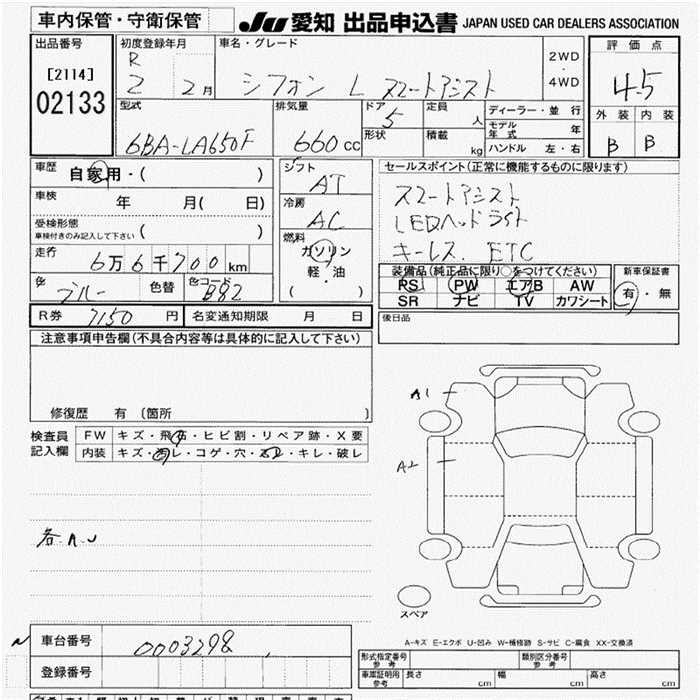 車内保管・守衛保管 JU 愛知 出品申込書 JAPAN USED CAR DEALERS ASSOCIATION
出品番号 初度登録年月 車名・グレード 2WD・4WD 評価点
[2114] R
02133 2 2月 シフォン L スマートアシスト 4.5
型式 排気量 ドア 5 定員 人 ディーラー・並行 外装 内装
6BA-LA650F 660cc 形状 積載 kg モデル年式 年 B B
ハンドル 左・右
車歴 自家用・( ) シフト AT セールスポイント(正常に機能するものに限ります)
車検 年 月( 日) 冷房 AC スマートアシスト
受検形態 ( ) LEDヘッドライト
車検付きのみ記入して下さい 燃料 ガソリン キーレス. ETC
走行 6万6千700km 軽・油
色 ブルー 色替 色コード B82 ( )
装備品(純正品に限り○をつけてください) 新車保証書
PS PW エアB AW 有・無
SR ナビ TV カワシート
R券 7150円 名変通知期限 月 日 後日品
注意事項申告欄(不具合内容等は具体的に記入して下さい)
修復歴 有 〔箇所 〕
検査員記入欄 FW キズ・飛石・ヒビ割・リペア跡・X要
内装 キズ・汚レ・コゲ・穴・スレ・キレ・破レ
A1
A2
各AU
スペア
A-キズ E-エクボ U-凹み W-補修跡 S-サビ C-腐食 XX-交換済
車台番号 0003298
登録番号
形式指定番号 参考 類別区分番号 参考
車庫証明用 参考 長さ cm 幅 cm 高さ cm